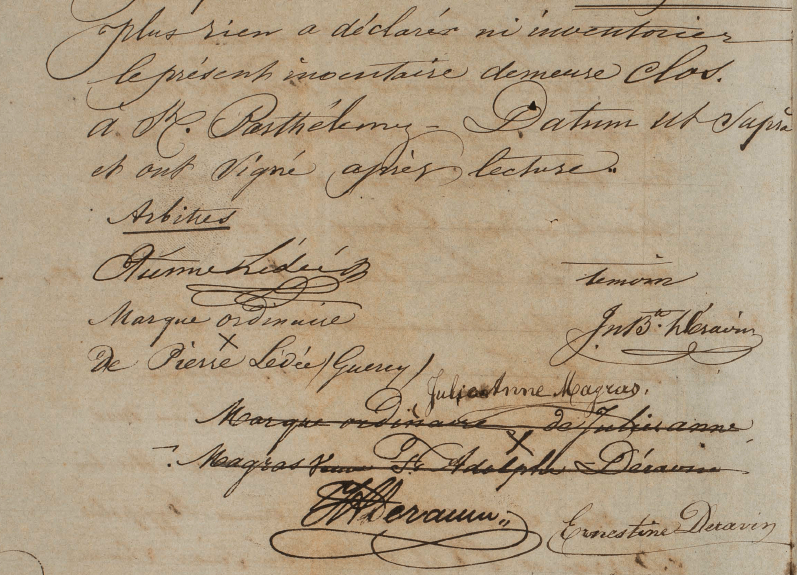 plus rien a déclarér ni inventorier
le présent inventaire demeure clos.
à St. Barthélemy - Datum ut Supra
et ont Signé après lecture.,
Arbitres
Etienne Lédée
temoin
Marque ordinaire
Jn Bte. Déravin
x
De Pierre Lédée (Guercy)
Julie Anne Magras.
Marque ordinaire de Julie anne
x
Magras Ve. Adolphe Déravin
Deravin
Ernestine Deravin